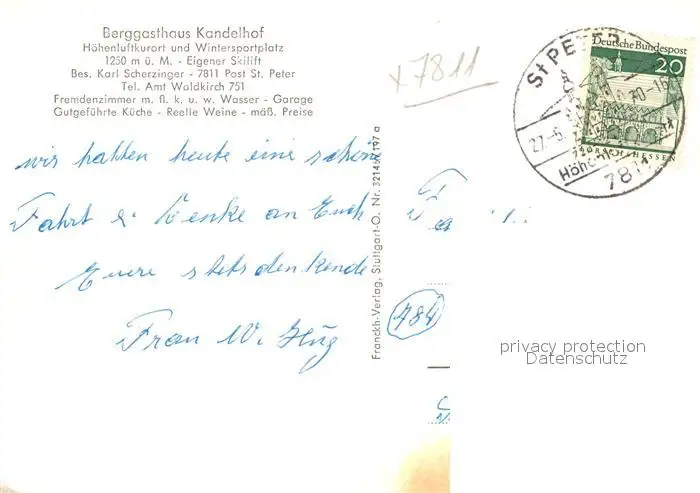 Berggasthaus Kandelhof
Höhenluftkurort und Wintersportplatz
1250 m ü. M. - Eigener Skilift
Bes. Karl Scherzinger - 7811 Post St. Peter
Tel. Amt Waldkirch 751
Fremdenzimmer m. fl. k. u. w. Wasser - Garage
Gutgeführte Küche - Reelle Weine - mäß. Preise
x7811
St PETER
Deutsche Bundespost
20
27.-6.
LORSCH/HESSEN
7811
wir hatten heute eine schöne
Fahrt & Denke an Euch
Euere stets denkende
Frau W. Hug
Franckh-Verlag, Stuttgart-O. Nr.
484
privacy protection
Datenschutz